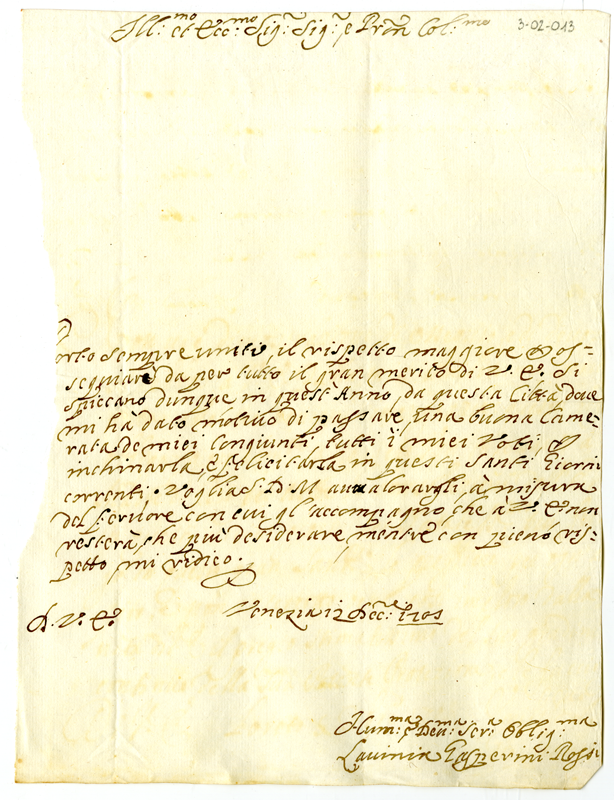 Ill:mo et Ecc:mo Sig:r Sig:r e Pron Col:mo
3-02-013
Porto sempre uniti, il rispetto maggiore d'os=
sequiare da per tutto il gran merito di V. E. Si
spiccano dunque in quest'Anno, da questa Città, dove
mi hà dato motivo di passare, una buona Came=
rata de miei Congiunti, tutti i miei Voti, d'
inchinarla, e felicitarla in questi Santi Giorni
correnti. Voglia S. D. M. avvalorargli, à misura
del fervore con cui gl'accompagno, che à V. E. non
resterà, che più desiderare, mentre con pieno ris=
petto mi ridico.
D. V. E.
Venezia 12 Dec:e 1705
Hum:ma e Dev:ma Ser:a Oblig:ma
Lavinia Gasperini Rossi